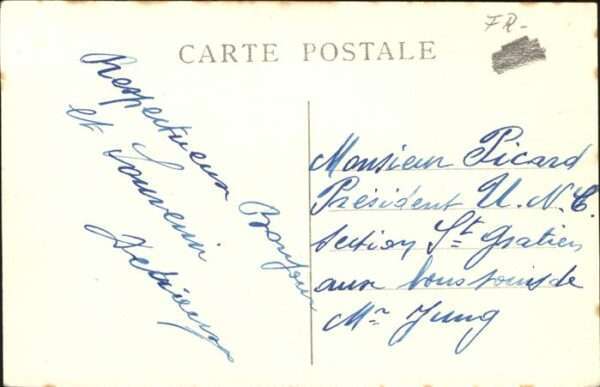 FR-
CARTE POSTALE
Respectueux Bonjour
et Souvenir
Monsieur Picard
Président U.N.C.
section St Gratien
aux bons soins de
Mr Jung